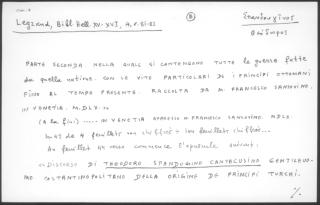 Legrand, Bibl. Hell. XV-XVI, 
Σπανδουγῖνος
Θεόδωρος
PARTE SECONDA NELLA QUALE SI CONTENGONO TUTTE LE guerre fatte
da quella natione. CON LE VITE PARTICOLARI DI I PRINCIPI OTTOMANI
FINO AL TEMPO PRESENTE. RACCOLTA DA M. FRANCESCO SANSOVINO.
IN VENETIA. M.DLX.
(A la fin) ..... IN VENETIA APPRESSO FRANCESCO SANSOVINO. MDLX.
de 4 feuillets non chiffrés + feuillets chiffrés...
Au feuillet commence l'opuscule suivant.
DISCORSO DI THEODORO SPANDUGINO CANTACUSINO GENTILHUO-
MO COSTANTINOPOLITANO DELLA ORIGINE DE PRINCIPI TURCHI.
%